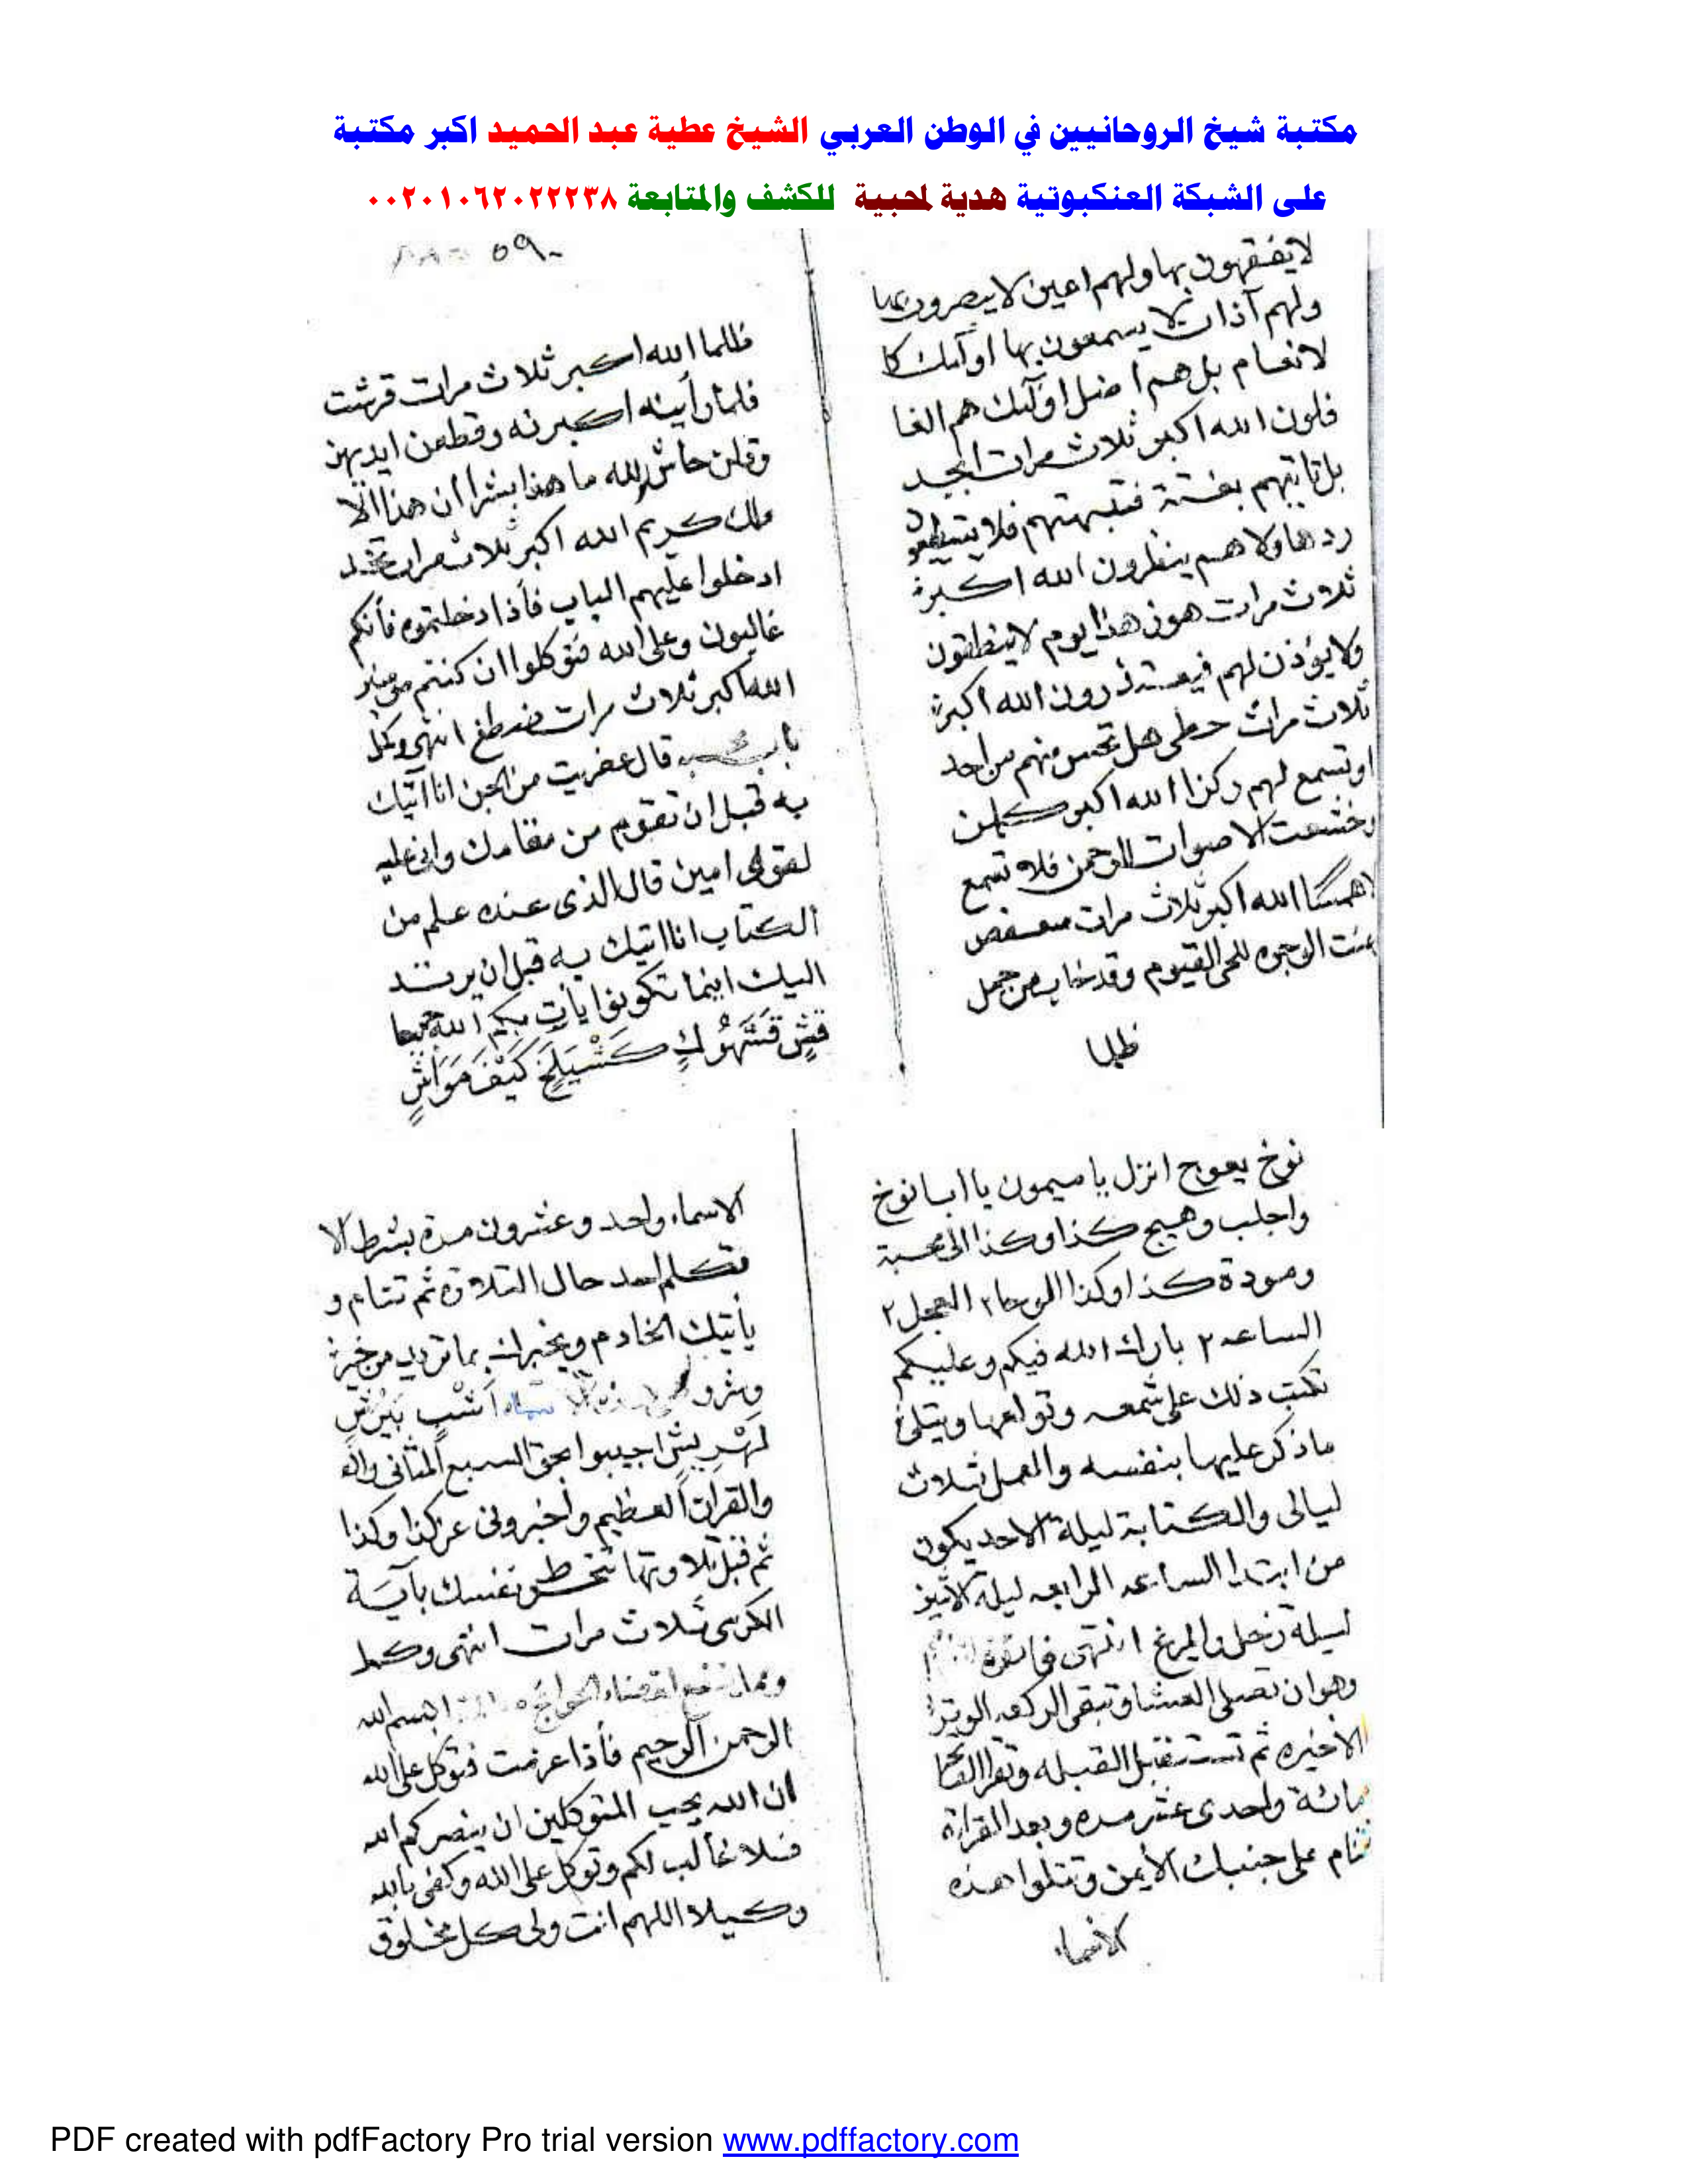 مكتبة شيخ الروحانيين في الوطن العربي الشيخ عطية عبد الحميد اكبر مكتبة
على الشبكة العنكبوتية هدية لمحبيه للكشف والمتابعة ٠٠٢٠١٠٦٢٠٢٢٢٣٨
لا يفقهون بها ولهم اعين لا يبصرون بها
ولهم آذان لا يسمعون بها اولئك كا
لانعام بل هم اضل اولئك هم الغا
فلون الله اكبر ثلاث مرات ابجد
بل تاتيهم بغتة فتبهتهم فلا يستطيعو
ردها ولا هم ينظرون الله اكبر
ثلاث مرات هوز هذا يوم لا ينطقون
ولا يؤذن لهم فيعتذرون الله اكبر
ثلاث مرات حطى هل تحس منهم من احد
او تسمع لهم ركزا الله اكبر كلمن
وخشعت الاصوات للرحمن فلا تسمع
الا همسا الله اكبر ثلاث مرات سعفص
عنت الوجوه للحى القيوم وقد خاب من حمل
ظلما
٥٩٠
ظلما الله اكبر ثلاث مرات قرشت
فلما رأينه اكبرنه وقطعن ايديهن
وقلن حاش لله ما هذا بشرا ان هذا الا
ملك كريم الله اكبر ثلاث مرات تخذ
ادخلوا عليهم الباب فأذا دخلتموه فأنكم
غالبون وعلى الله فتوكلوا ان كنتم مومنين
الله اكبر ثلاث مرات ضظغ انتهى وكمل
باب قال عفريت من الجن انا اتيك
به قبل ان تقوم من مقامك وانى عليه
لقوى امين قال الذى عنده علم من
الكتاب انا اتيك به قبل ان يرتد
اليك اينما تكونوا يأت بكم الله جميعا
قَشٍ قَشَهْرُكٍ كَشْيَلَخٍ كَيْفَ مَوَاشٍ
نوخ يعوج انزل يا ميمون يا ابا نوخ
واجلب وهيج كذا وكذا الى محبة
ومودة كذا وكذا الوحا٢ العجل٢
الساعه ٢ بارك الله فيكم وعليكم
تكتب ذلك على شمعه وتولعها ويتلى
ما ذكر عليها بنفسه والعمل ثلاث
ليالى والكتابة ليلة الاحد يكون
من ابتدا الساعه الرابعه ليلة الاثنين
ليلة زحل والمريخ انتهى فائدة
وهو ان تصلى العشا وتبقى الركعه الوتر
الاخيره ثم تستقبل القبله وتقرا الفاتحا
مائة واحدى عشر مره وبعد القراة
تنام على جنبك الأيمن وتتلوا هذه
الاسماء
الاسماء واحد وعشرون مرة بشرط الا
تتكلم احد حال التلاوة ثم تنام و
يأتيك الخادم ويخبرك بما تريد من خير
وشرو هذه الاسماء اَشْبٍ بَيْرَشٍ
لَهْرِيشٍ اجيبوا بحق السبع المثانى والقر
والقرآن العظيم واخبرونى عن كذا وكذا
ثم قبل تلاوتها تحصن نفسك بآية
الكرسى ثلاث مرات انتهى وكمل
ومما لقضاء الحوائج بسم الله
الرحمن الرحيم فأذا عزمت فتوكل على الله
ان الله يحب المتوكلين ان ينصركم الله
فلا غالب لكم وتوكل على الله وكفى بالله
وكيلا اللهم انت ولى كل مخلوق
PDF created with pdfFactory Pro trial version www.pdffactory.com